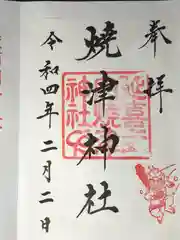 奉拝
焼津神社
令和四年二月二日